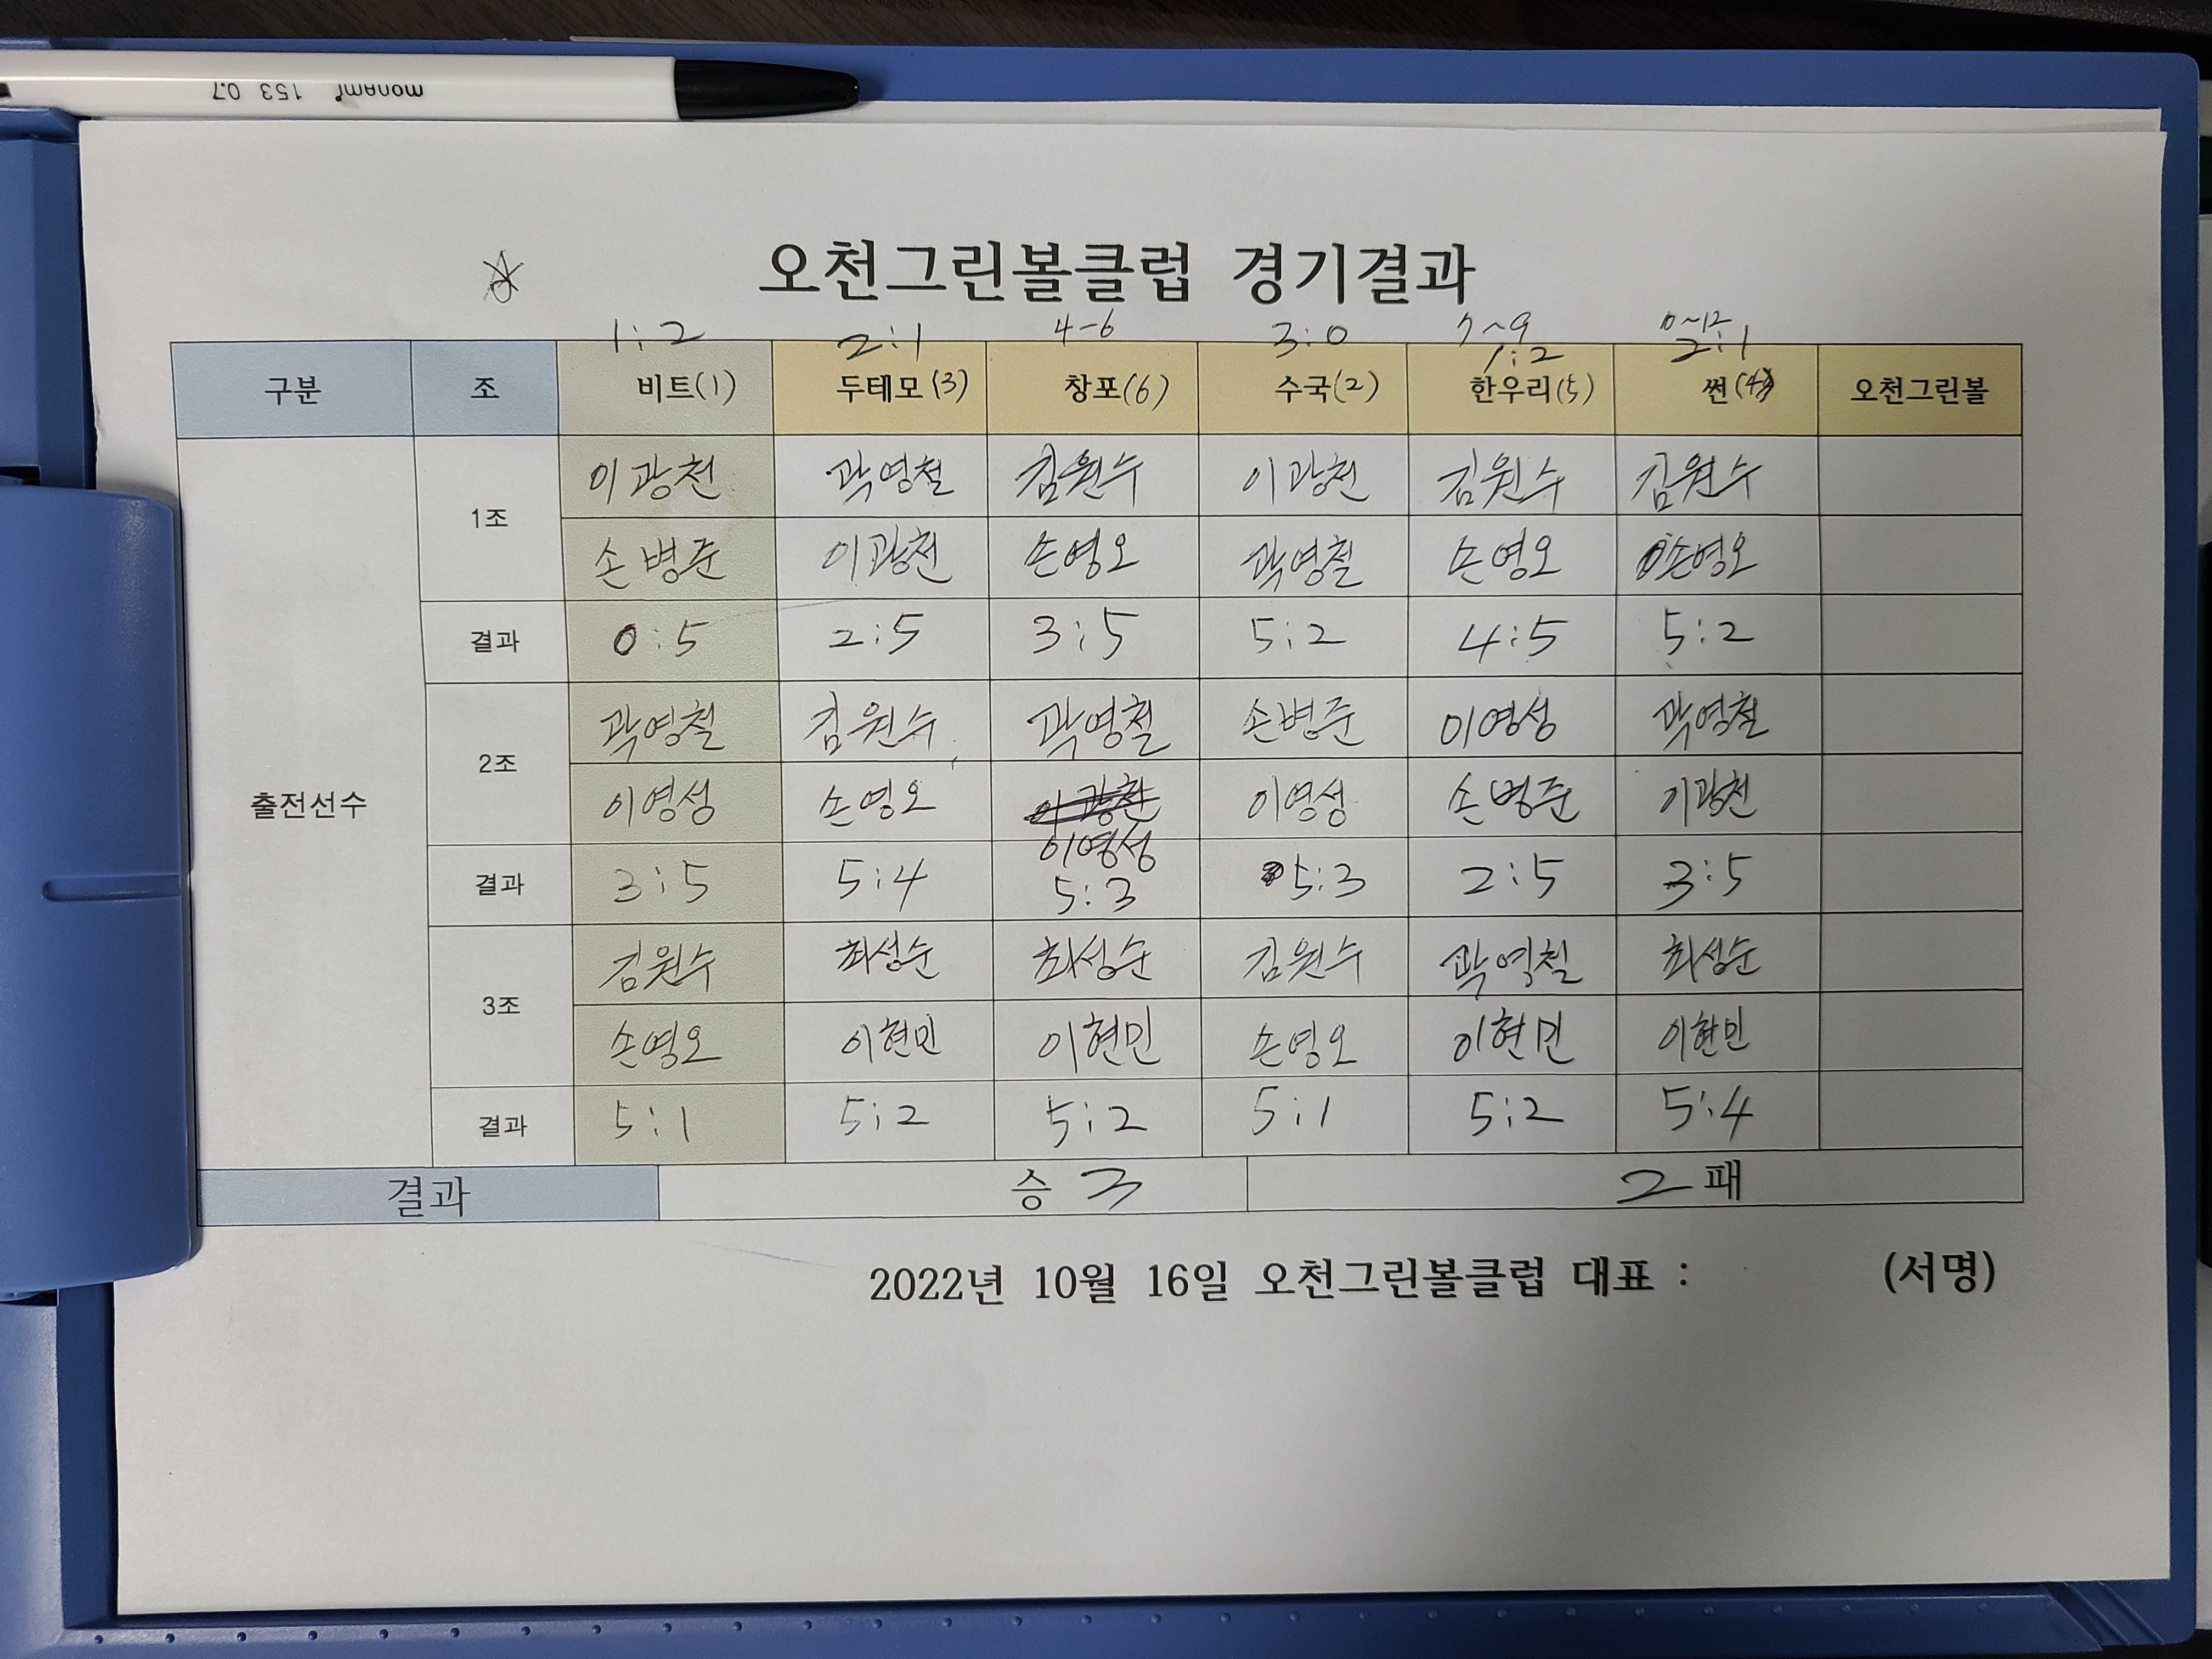 monami 153 0.7
오천그린볼클럽 경기결과
1:2 2:1 4-6 3:0 7~9 10~12
1:2 2:1
구분 조 비트(1) 두테모(3) 창포(6) 수국(2) 한우리(5) 썬(4) 오천그린볼
출전선수
1조
이광천 곽영철 김원수 이광천 김원수 김원수
손병준 이광천 손영오 곽영철 손영오 손영오
결과 0:5 2:5 3:5 5:2 4:5 5:2
2조
곽영철 김원수 곽영철 손병준 이영성 곽영철
이영성 손영오 이광천 이영성 손병준 이광천
이영성
결과 3:5 5:4 5:3 5:3 2:5 3:5
3조
김원수 최성순 최성순 김원수 곽영철 최성순
손영오 이현민 이현민 손영오 이현민 이현민
결과 5:1 5:2 5:2 5:1 5:2 5:4
결과 승 3 2 패
2022년 10월 16일 오천그린볼클럽 대표 : (서명)